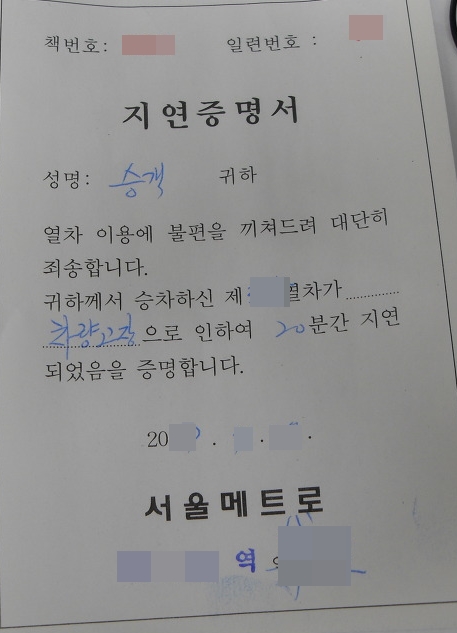 책번호:
일련번호 :
지연증명서
성명: 승객 귀하
열차 이용에 불편을 끼쳐드려 대단히
죄송합니다.
귀하께서 승차하신 제 열차가
차량고장으로 인하여 20분간 지연
되었음을 증명합니다.
20 . . .
서울메트로
역